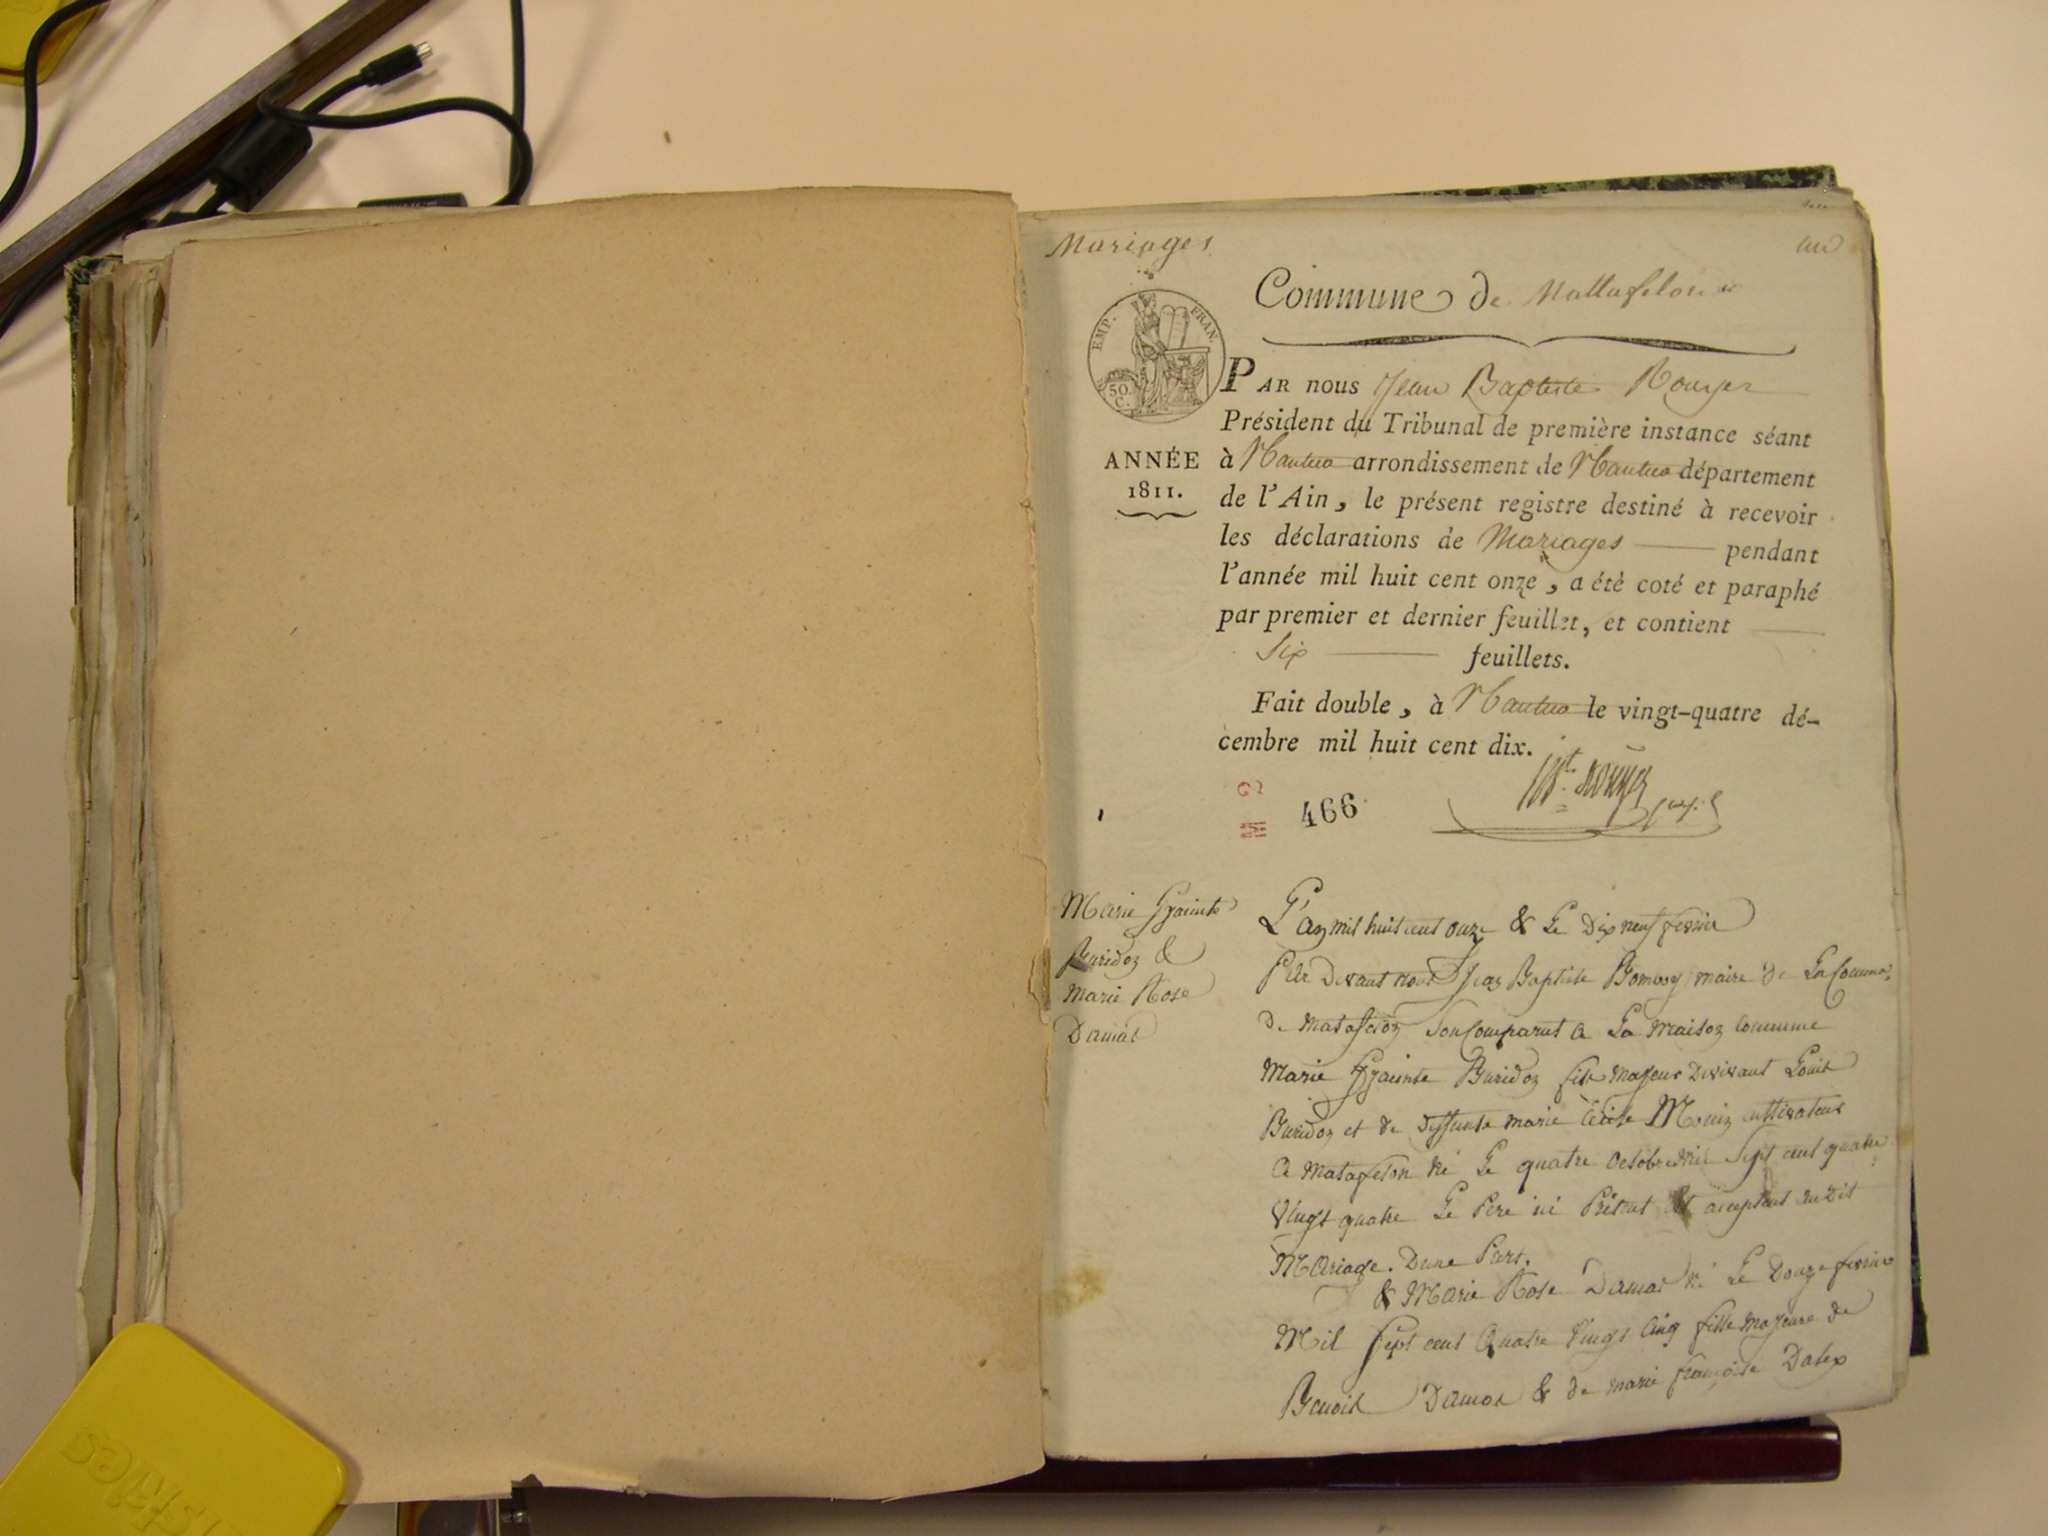 Mariages
un
Commune de Mattafelon
EMP. FRAN.
50.
C.
ANNÉE
1811.
PAR nous Jean Baptiste Rouyer
Président du Tribunal de première instance séant
à Nantua arrondissement de Nantua département
de l'Ain, le présent registre destiné à recevoir
les déclarations de Mariages pendant
l'année mil huit cent onze, a été coté et paraphé
par premier et dernier feuillet, et contient
Six feuillets.
Fait double, à Nantua le vingt-quatre dé-
cembre mil huit cent dix.
Bte Rouyer
466
Marie Hyacinte
Buridoz &
Marie Rose
Damas
L'an mil huit cent onze & Le Dix neuf fevrier
Par Devant nous Jean Baptiste Bomboy maire de La Commune
De Matafelon Son Comparut a La Maison Commune
Marie Hyacinte Buridoz fils majeur De vivant Louis
Buridoz et de deffunte marie Cécile Monin cultivateur
a Matafelon né Le quatre octobre Mil Sept cent quatre
Vingt quatre Le Pere ici Présent Et acceptant du Dit
Mariage. Dune Part.
& Marie Rose Damas né Le Douze fevrier
Mil Sept cent Quatre Vingt Cinq fille majeure de
Benoit Damas & de marie françoise Dalex